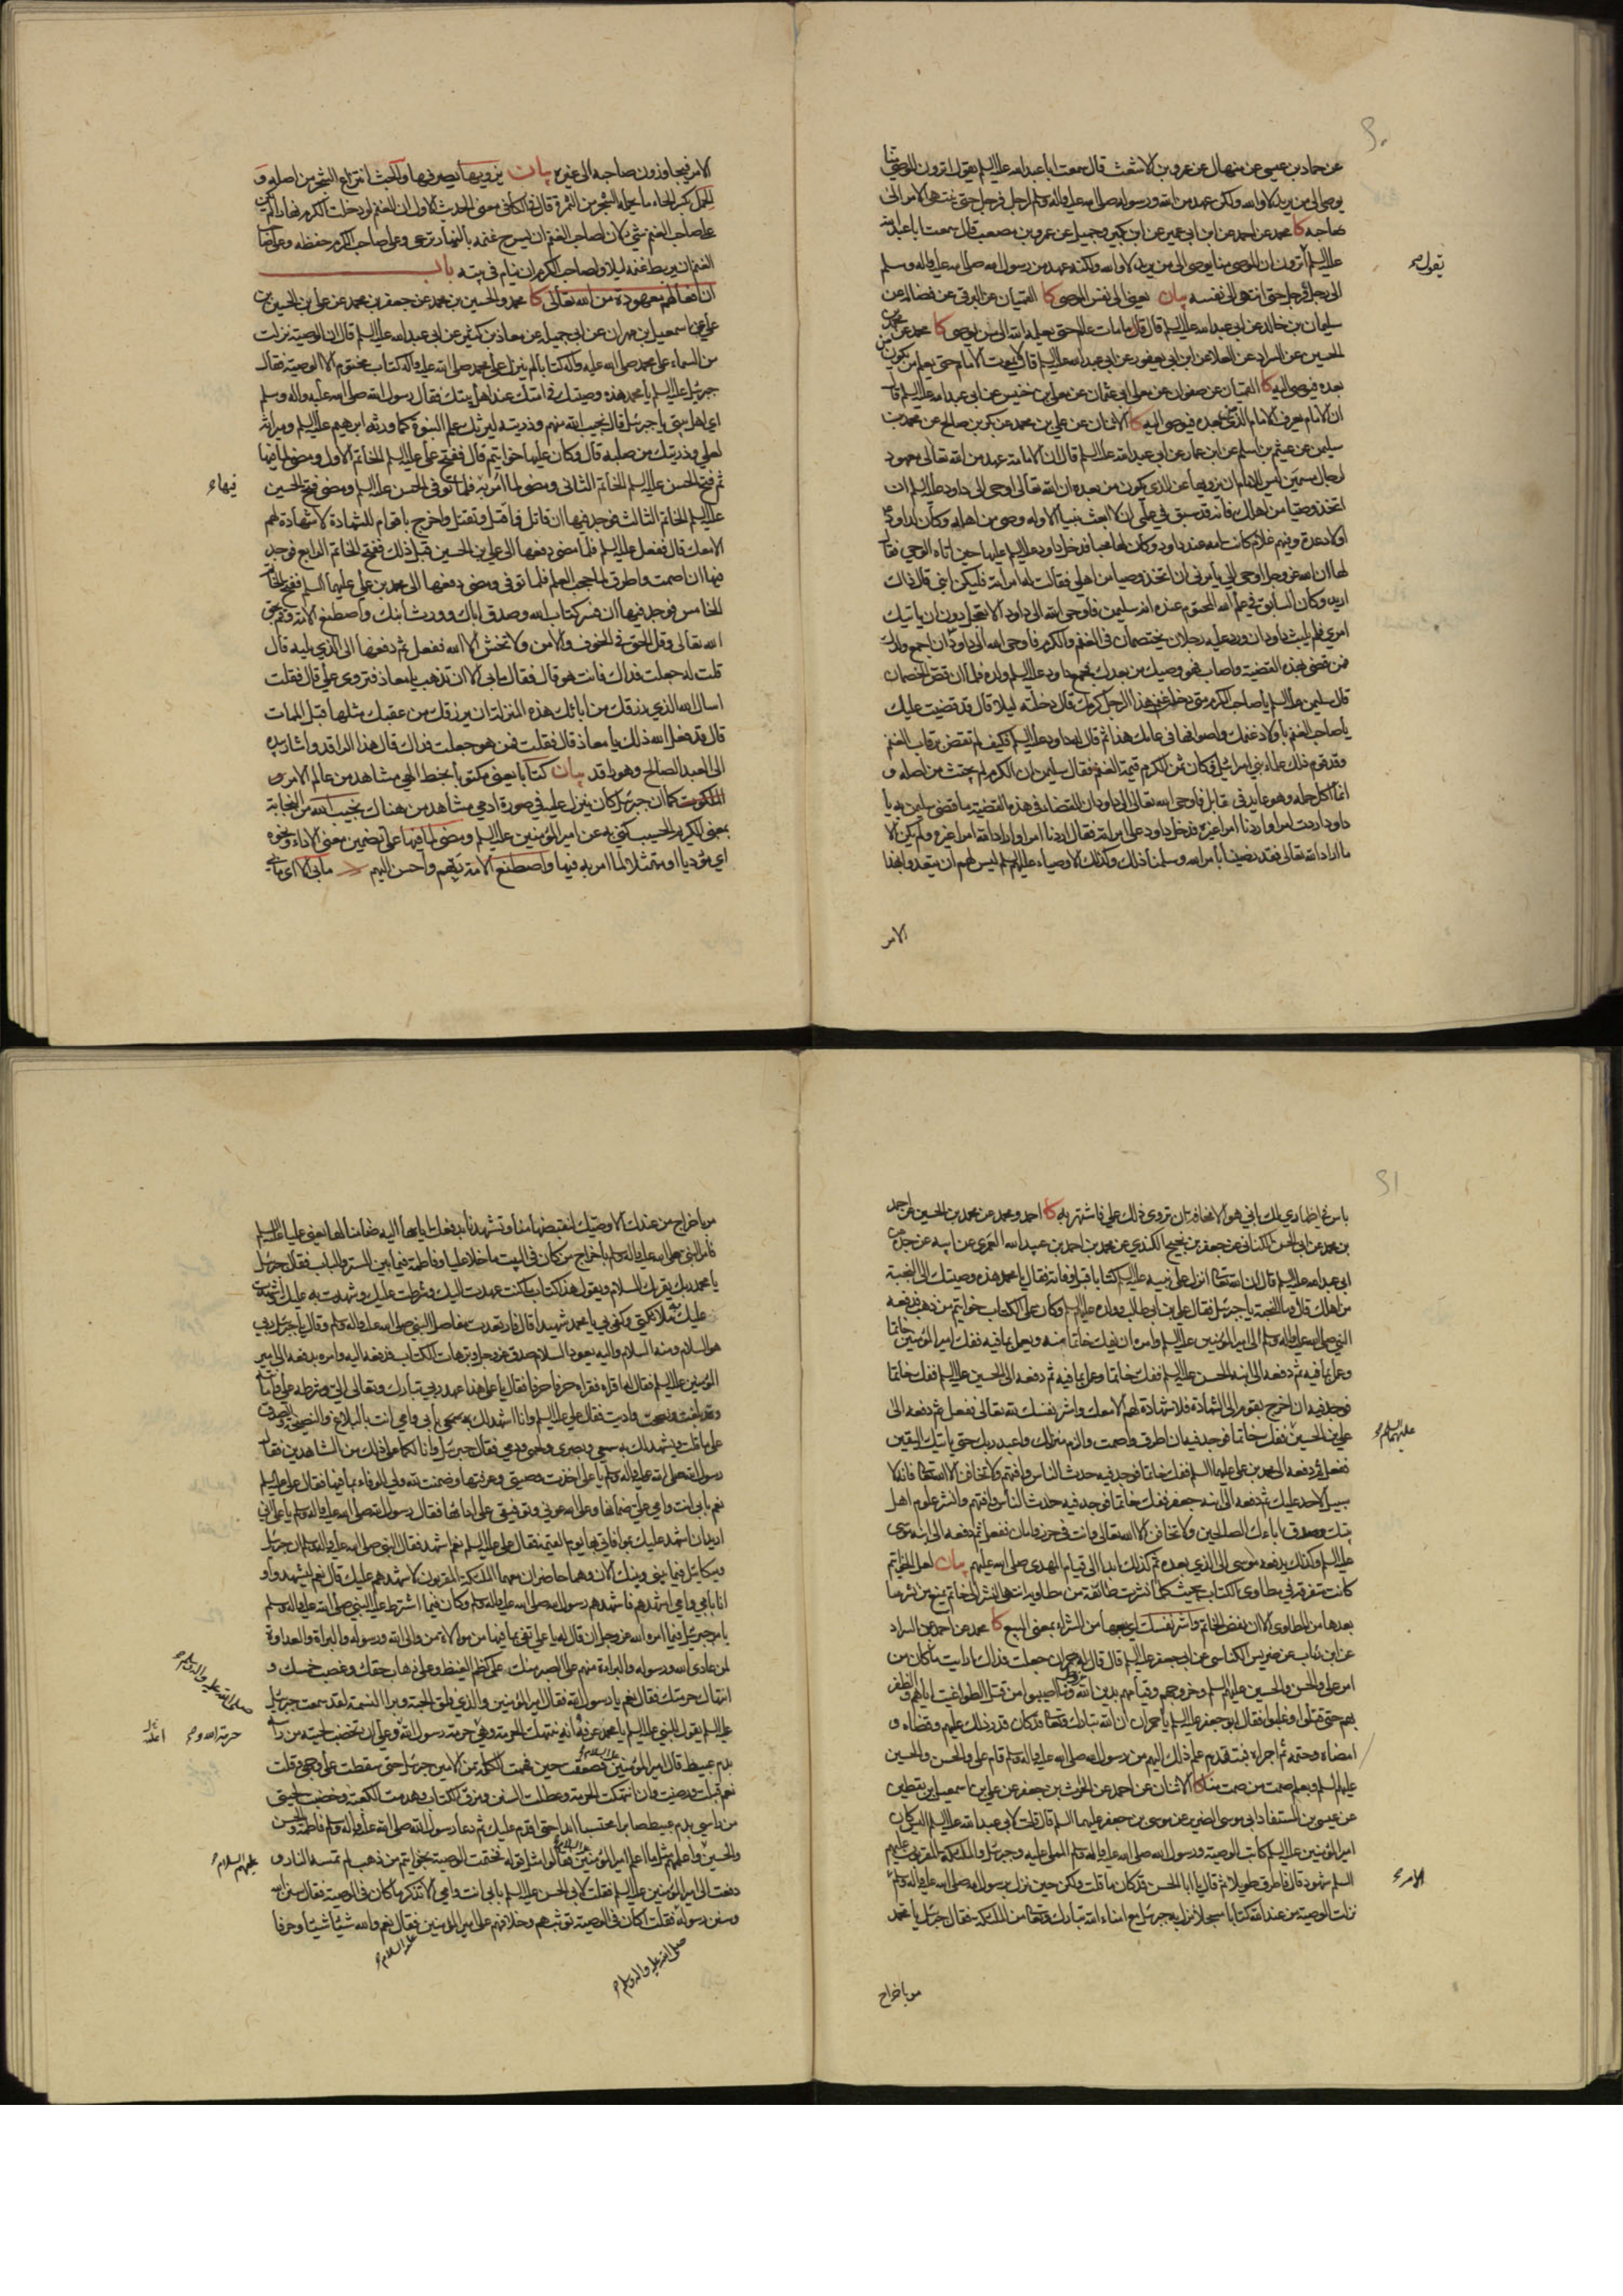 عن حماد بن عيسى عن منهال عن عمرو بن الاشعث قال سمعت ابا عبد الله عليه السلم يقول اترون الموصي منا
يوصي الى من يريد لا والله ولكن عهد من الله ورسوله صلى الله عليه واله وسلم لرجل فرجل حتى ينتهي الامر الى
صاحبه كا محمد عن احمد عن ابن ابي عمير عن ابن بكير وجميل عن عمرو بن مصعب قال سمعت ابا عبد الله
عليه السلم اترون ان الموصي منا يوصي الى من يريد لا والله ولكنه عهد من رسول الله صلى الله عليه واله وسلم
الى رجل فرجل حتى انتهى الى نفسه بيان يعني الى نفس الموصي كا العتبان عن البرقي عن فضالة عن
سليمان بن خالد عن ابي عبد الله عليه السلم قال قال ما مات عالم حتى يعلمه الله الى من يوصي كا محمد عن محمد بن
الحسين عن السراد عن العلا عن ابن ابي يعفور عن ابي عبد الله عليه السلم قال لا يموت الامام حتى يعلم من يكون من
بعده فيوصي اليه كا القميان عن صفوان عن معلى ابي عثمان عن معلى بن خنيس عن ابي عبد الله عليه السلم قال
ان الامام يعرف الامام الذي من بعده فيوصي اليه كا الاثنان عن علي بن محمد عن بكر بن صالح عن محمد بن
سليمن عن عيثم بن اسلم عن ابن عمار عن ابي عبد الله عليه السلم قال ان الامامة عهد من الله تعالى معهود
لرجال مسمين ليس للامام ان يزويها عن الذي يكون من بعده ان الله تعالى اوحى الى داود عليه السلم ان
اتخذ وصيا من اهلك فانه قد سبق في علمي ان لا ابعث نبيا الا وله وصي من اهله وكان لداود ع
اولاد عدة وفيهم غلام كانت امه عند داود وكان لها محبا فدخل داود عليه السلم عليها حين اتاه الوحي فقال
لها ان الله عز وجل اوحى الي يأمرني ان اتخذ وصيا من اهلي فقالت له امراته فليكن ابني قال ذلك
اريد وكان السابق في علم الله المحتوم عنده انه سليمن فاوحى الله الى داود الا تعجل دون ان ياتيك
امري فلم يلبث داود ان ورد عليه رجلان يختصمان في الغنم والكرم فاوحى الله الى داود ان اجمع ولدك
فمن قضى بهذه القضية واصاب فهو وصيك من بعدك فجمع داود عليه السلم ولده فلما ان قص الخصمان
قال سليمن عليه السلم يا صاحب الكرم متى دخلت غنم هذا الرجل كرمك قال دخلته ليلا قال قد قضيت عليك
يا صاحب الغنم باولاد غنمك واصوافها في عامك هذا ثم قال له داود عليه السلم فكيف لم تقض برقاب الغنم
وقد قوم ذلك علماء بني اسرائيل وكان ثمن الكرم قيمة الغنم فقال سليمن ان الكرم لم يجتث من اصله و
انما اكل حمله وهو عايد في قابل فاوحى الله تعالى الى داود ان القضاء في هذه القضية ما قضى سليمن به يا
داود اردت امرا واردنا امرا غيره فدخل داود على امراته فقال اردنا امرا واراد الله امرا غيره ولم يكن الا
ما اراد الله تعالى فقد رضينا بامر الله وسلمنا وكذلك الاوصياء عليهم السلم ليس لهم ان يتعدوا بهذا
يقول
الامر
الامر فيجاوزون صاحبه الى غيره بيان يزويها يصرفها والجث انتزاع الشجر من اصله و
الحمل بكسر الحاء ما يحمله الشجر من الثمرة قال في الكافي معنى الحديث الاول ان الغنم لو دخلت الكرم نهارا لم يكن
على صاحب الغنم شيء لان لصاحب الغنم ان يسرح غنمه بالنهار ترعى وعلى صاحب الكرم حفظه وعلى صاحب
الغنم ان يربط غنمه ليلا ولصاحب الكرم ان ينام في بيته باب
ان افعالهم معهودة من الله تعالى كا محمد والحسين بن محمد عن جعفر بن محمد عن علي بن الحسين بن
علي عن اسمعيل بن مهران عن ابي جميلة عن معاذ بن كثير عن ابي عبد الله عليه السلم قال ان الوصية نزلت
من السماء على محمد صلى الله عليه واله كتابا لم ينزل على محمد صلى الله عليه واله كتاب مختوم الا الوصية فقال
جبرئيل عليه السلم يا محمد هذه وصيتك في امتك عند اهل بيتك فقال رسول الله صلى الله عليه واله وسلم
اي اهل بيتي يا جبرئيل قال نجيب الله منهم وذريته ليرثك علم النبوة كما ورثه ابرهيم عليه السلم وميراثه
لعلي وذريتك من صلبه قال وكان عليها خواتيم قال ففتح علي عليه السلم الخاتم الاول ومضى لما فيها
ثم فتح الحسن عليه السلم الخاتم الثاني ومضى لما امر به فلما توفي الحسن عليه السلم ومضى فتح الحسين
عليه السلم الخاتم الثالث فوجد فيها ان قاتل فاقتل وتقتل واخرج باقوام للشهادة لا شهادة لهم
الا معك قال ففعل عليه السلم فلما مضى دفعها الى علي بن الحسين قبل ذلك ففتح الخاتم الرابع فوجد
فيها ان اصمت واطرق لما حجب العلم فلما توفي ومضى دفعها الى محمد بن علي عليهما السلم ففتح الخاتم
الخامس فوجد فيها ان فسر كتاب الله وصدق اباك وورث ابنك واصطنع الامة وقم بحق
الله تعالى وقل الحق في الخوف والامن ولا تخش الا الله ففعل ثم دفعها الى الذي يليه قال
قلت له جعلت فداك فانت هو قال فقال ما بي الا ان تذهب يا معاذ فتروي علي قال فقلت
اسال الله الذي رزقك من ابائك هذه المنزلة ان يرزقك من عقبك مثلها قبل الممات
قال قد فعل الله ذلك يا معاذ قال فقلت فمن هو جعلت فداك قال هذا الراقد واشار بيده
الى العبد الصالح وهو راقد بيان كتابا يعني مكتوبا بخط الهي مشاهد من عالم الامر و
الملكوت كما ان جبرئيل كان ينزل عليه في صورة ادمي مشاهد من هناك نجيب الله من النجابة
بمعنى الكريم الحسيب كنى به عن امير المؤمنين عليه السلم ومضى لما فيها على تضمين معنى الاداء ونحوه
اي مؤديا او ممتثلا لما امر به فيها واصطنع الامة ربهم واحسن اليهم ما بي الا اي ما بي
فيها
باس في اظهاري لك باني هو الا مخافة ان تروي ذلك علي فاشتهر به كا احمد ومحمد عن محمد بن الحسين عن احمد
بن محمد عن ابي الحسن الكناني عن جعفر بن نجيح الكندي عن محمد بن احمد بن عبيد الله العمري عن ابيه عن جده عن
ابي عبد الله عليه السلم قال ان الله تعالى انزل على نبيه عليه السلم كتابا قبل وفاته فقال يا محمد هذه وصيتك الى النجبة
من اهلك قال وما النجبة يا جبرئيل فقال علي بن ابي طالب وولده عليهم السلم وكان على الكتاب خواتيم من ذهب فدفعه
النبي صلى الله عليه واله وسلم الى امير المؤمنين عليه السلم وامره ان يفك خاتما منه ويعمل بما فيه ففك امير المؤمنين خاتما
وعمل بما فيه ثم دفعه الى ابنه الحسن عليه السلم ففك خاتما وعمل بما فيه ثم دفعه الى الحسين عليه السلم ففك خاتما
فوجد فيه ان اخرج بقوم الى الشهادة فلا شهادة لهم الا معك واشر نفسك لله تعالى ففعل ثم دفعه الى
علي بن الحسين ففك خاتما فوجد فيه ان اطرق واصمت والزم منزلك واعبد ربك حتى ياتيك اليقين
ففعل ثم دفعه الى محمد بن علي عليهما السلم ففك خاتما فوجد فيه حدث الناس وافتهم ولا تخافن الا الله تعالى فانه لا
سبيل لاحد عليك ثم دفعه الى ابنه جعفر ففك خاتما فوجد فيه حدث الناس وافتهم وانشر علوم اهل
بيتك وصدق اباءك الصالحين ولا تخافن الا الله تعالى وانت في حرز وامان ففعل ثم دفعه الى ابنه موسى
عليه السلم وكذلك يدفعه موسى الى الذي بعده ثم كذلك ابدا الى قيام المهدي صلى الله عليهم بيان لعل الخواتيم
كانت متفرقة في مطاوي الكتاب بحيث كلما نشرت طائفة من مطاويه انتهى النشر الى خاتم يمنع من نشر ما
بعدها من المطاوي الا ان يفض الخاتم واشر نفسك اي بعها من الشراء بمعنى البيع كا محمد عن احمد عن السراد
عن ابن رئاب عن ضريس الكناسي عن ابي جعفر عليه السلم قال قال له حمران جعلت فداك ارايت ما كان من
امر علي والحسن والحسين عليهم السلم وخروجهم وقيامهم بدين الله عز وجل وما اصيبوا من قتل الطواغيت اياهم والظفر
بهم حتى قتلوا وغلبوا فقال ابو جعفر عليه السلم يا حمران ان الله تبارك وتعالى قد كان قدر ذلك عليهم وقضاه و
امضاه وحتمه ثم اجراه فبتقدم علم ذلك اليهم من رسول الله صلى الله عليه واله وسلم قام علي والحسن والحسين
عليهم السلم وبعلم صمت من صمت منا كا الاثنان عن احمد عن الحرث بن جعفر عن علي بن اسمعيل بن يقطين
عن عيسى بن المستفاد ابي موسى الضرير عن موسى بن جعفر عليهما السلم قال قلت لابي عبد الله عليه السلم اليس كان
امير المؤمنين عليه السلم كاتب الوصية ورسول الله صلى الله عليه واله وسلم المملي عليه وجبرئيل والملائكة المقربون عليهم
السلم شهود قال فاطرق طويلا ثم قال يا ابا الحسن قد كان ما قلت ولكن حين نزل برسول الله صلى الله عليه واله وسلم
نزلت الوصية من عند الله كتابا مسجلا نزل به جبرئيل مع امناء الله تبارك وتعالى من الملائكة فقال جبرئيل يا محمد
عليهما السلام
الامر
مر باخراج
مر باخراج من عندك الا وصيك ليقبضها منا وتشهدنا بدفعك اياها اليه ضامنا لها يعني عليا عليه السلم
فامر النبي صلى الله عليه واله وسلم باخراج من كان في البيت ما خلا عليا وفاطمة فيما بين الستر والباب فقال جبرئيل
يا محمد ربك يقرئك السلام ويقول هذا كتاب ما كنت عهدت اليك وشرطت عليك وشهدت به عليك واشهدت به
عليك ملائكتي وكفى بي يا محمد شهيدا قال فارتعدت مفاصل النبي صلى الله عليه واله وسلم وقال يا جبرئيل ربي
هو السلام ومنه السلام واليه يعود السلام صدق عز وجل وبر هات الكتاب فدفعه اليه وامره بدفعه الى امير
المؤمنين عليه السلم فقال له اقراه فقراه حرفا حرفا فقال يا علي هذا عهد ربي تبارك وتعالى الي وشرطه علي وامانته
وقد بلغت ونصحت واديت فقال علي عليه السلم وانا اشهد لك بابي وامي انت بالبلاغ والنصيحة والصدق
على ما قلت ويشهد لك به سمعي وبصري ولحمي ودمي فقال جبرئيل وانا لكما على ذلك من الشاهدين فقال
رسول الله صلى الله عليه واله وسلم يا علي اخذت وصيتي وعرفتها وضمنت لله ولي الوفاء بما فيها فقال علي عليه السلم
نعم بابي انت وامي علي ضمانها وعلى الله عوني وتوفيقي على ادائها فقال رسول الله صلى الله عليه واله وسلم يا علي اني
اريد ان اشهد عليك بموافاتي بها يوم القيمة فقال علي عليه السلم نعم اشهد فقال النبي صلى الله عليه واله وسلم ان جبرئيل
وميكائيل فيما بيني وبينك الان وهما حاضران معهما الملائكة المقربون لاشهدهم عليك قال نعم ليشهدوا و
انا بابي وامي اشهدهم فاشهدهم رسول الله صلى الله عليه واله وسلم وكان فيما اشترط عليه النبي صلى الله عليه واله وسلم
بامر جبرئيل فيما امره الله عز وجل ان قال له يا علي تفي بما فيها من موالاة من والى الله ورسوله والبراة والعداوة
لمن عادى الله ورسوله والبراءة منهم على الصبر منك على كظم الغيظ وعلى ذهاب حقك وغصب خمسك و
انتهاك حرمتك فقال نعم يا رسول الله فقال امير المؤمنين والذي فلق الحبة وبرا النسمة لقد سمعت جبرئيل
عليه السلم يقول للنبي عليه السلم يا محمد عرفه انه ينتهك الحرمة وهي حرمة رسول الله وعلى ان تخضب لحيته من راسه
بدم عبيط قال امير المؤمنين فصعقت حين فهمت الكلمة من الامين جبرئيل حتى سقطت على وجهي وقلت
نعم قبلت ورضيت وان انتهكت الحرمة وعطلت السنن ومزق الكتاب وهدمت الكعبة وخضبت لحيتي
من راسي بدم عبيط صابرا محتسبا ابدا حتى اقدم عليك ثم دعا رسول الله صلى الله عليه واله وسلم فاطمة والحسن
والحسين واعلمهم مثل ما اعلم امير المؤمنين فقالوا مثل قوله فختمت الوصية بخواتيم من ذهب لم تمسه النار و
دفعت الى امير المؤمنين عليه السلم فقلت لابي الحسن عليه السلم بابي انت وامي الا تذكر ما كان في الوصية فقال سنن الله
وسنن رسوله فقلت اكان في الوصية توثبهم وخلافهم على امير المؤمنين فقال نعم والله شيئا شيئا وحرفا
صلى الله عليه واله وسلم
حرمة الله و
عليهم السلام
عليه السلام
صلى الله عليه واله وسلم